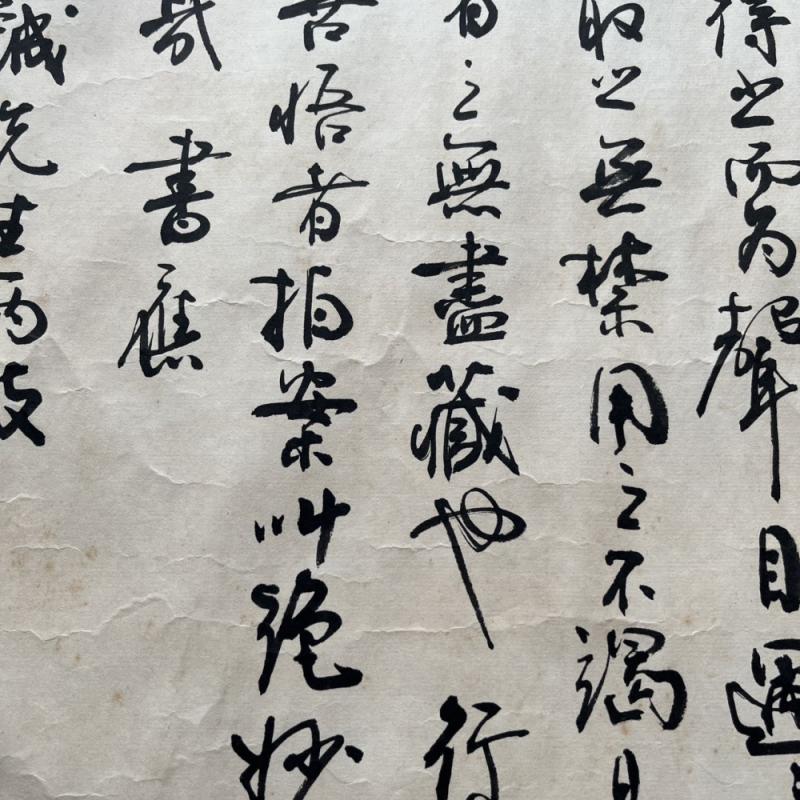 得之而為聲目遇
取之無禁用之不竭
者之無盡藏也 行
悟者拍案叫絕妙
哉 書應
誠先生